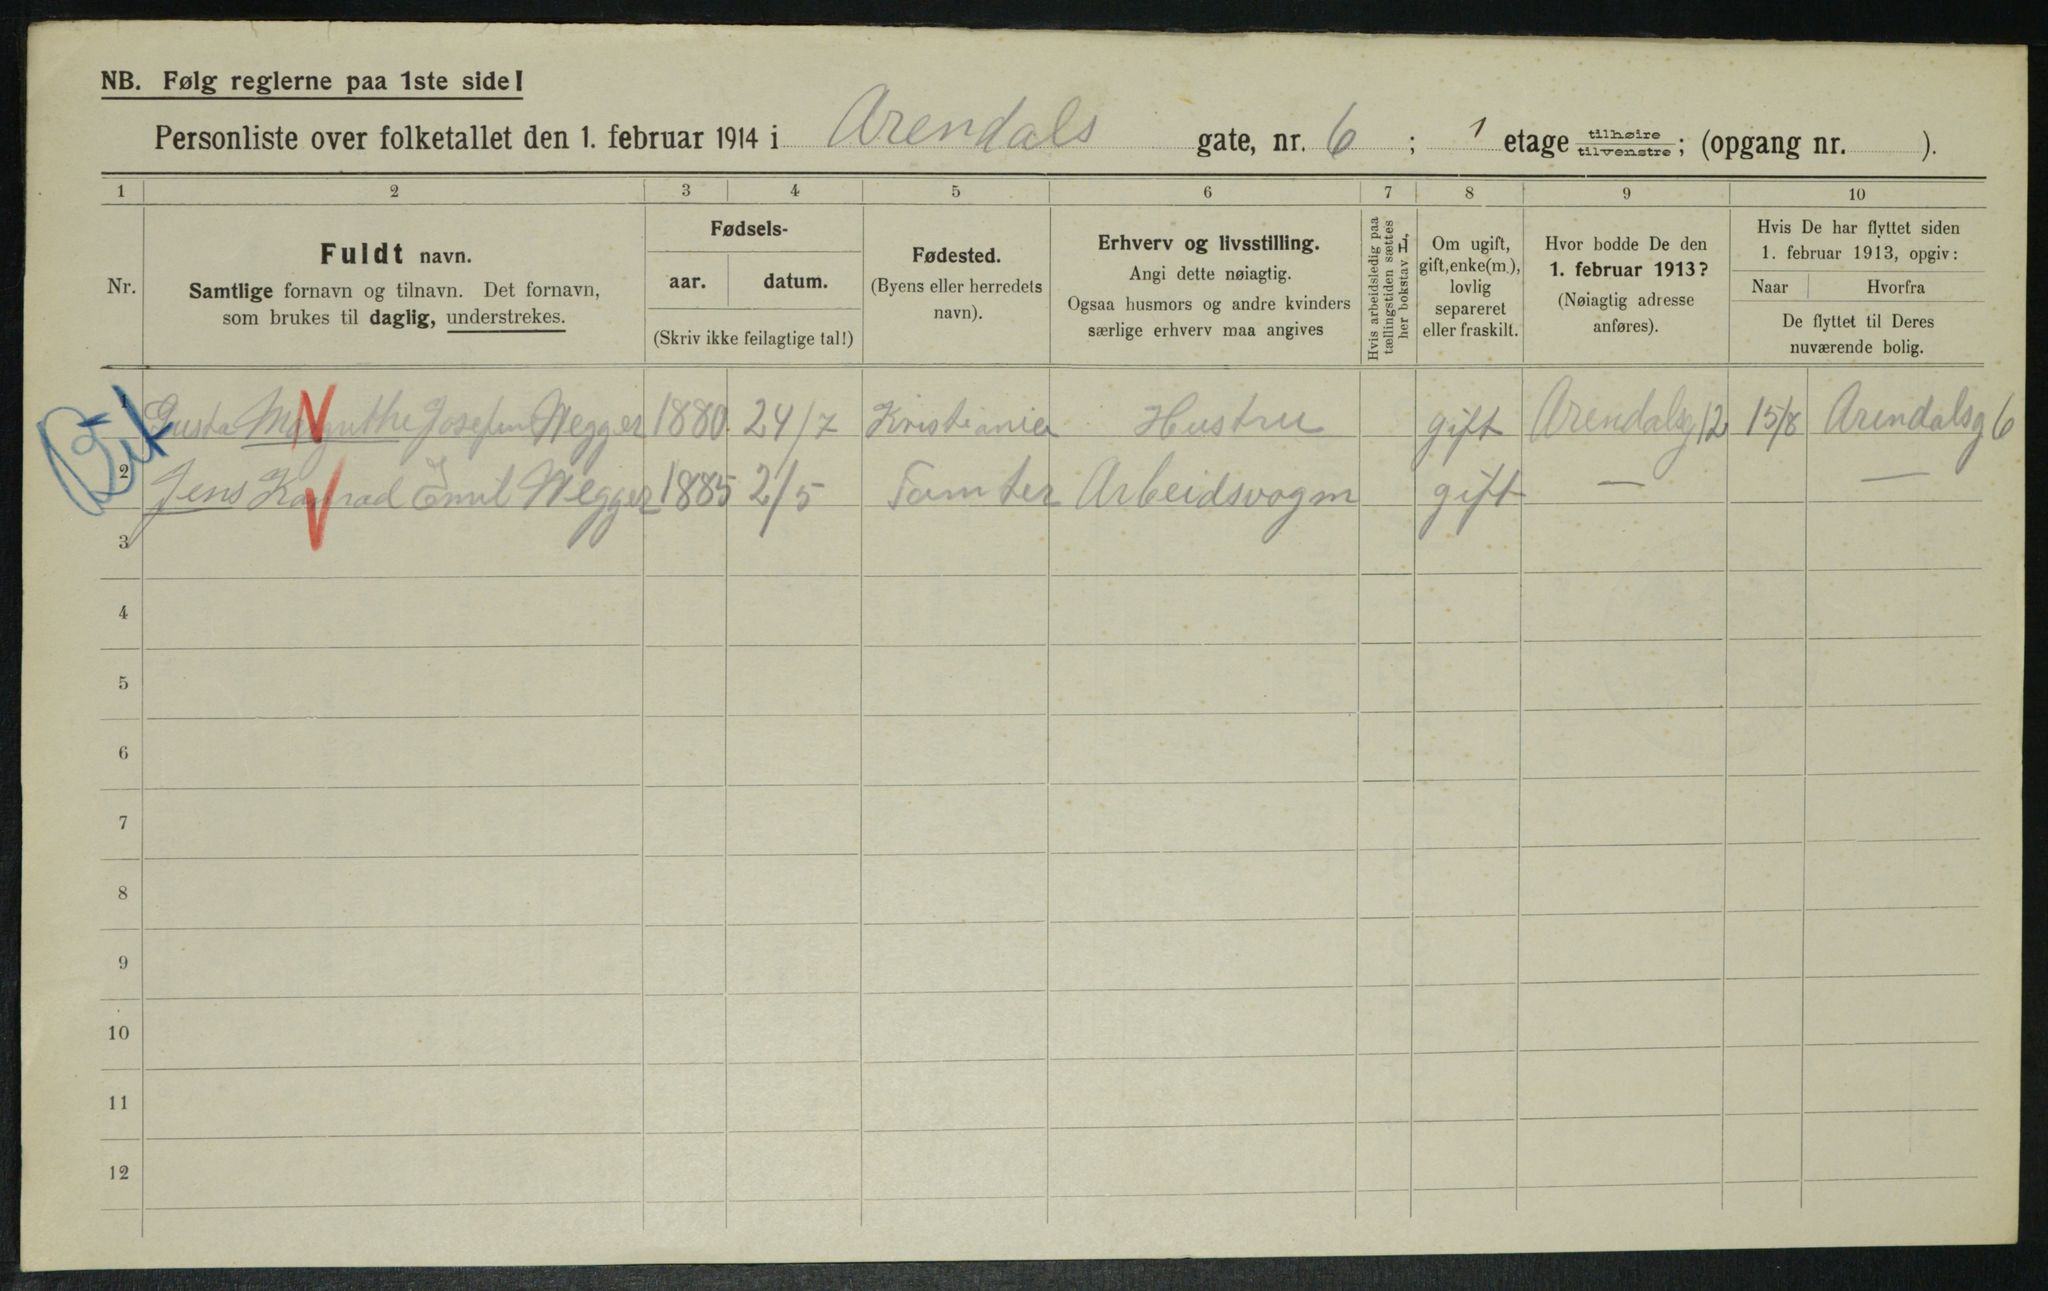 NB. Følg reglerne paa 1ste side!
Personliste over folketallet den 1. februar 1914 i Arendals gate, nr. 6 ; 1 etage tilhøire / tilvenstre ; (opgang nr. ).
1 2 3 4 5 6 7 8 9 10
Nr.
Fuldt navn.
Samtlige fornavn og tilnavn. Det fornavn,
som brukes til daglig, understrekes.
Fødsels-
aar. datum.
(Skriv ikke feilagtige tal!)
Fødested.
(Byens eller herredets
navn).
Erhverv og livsstilling.
Angi dette nøiagtig.
Ogsaa husmors og andre kvinders
særlige erhverv maa angives
Hvis arbeidsledig paa
tællingstiden sættes
her bokstav L,
Om ugift,
gift, enke(m.),
lovlig
separeret
eller fraskilt.
Hvor bodde De den
1. februar 1913?
(Nøiagtig adresse
anføres).
Hvis De har flyttet siden
1. februar 1913, opgiv:
Naar Hvorfra
De flyttet til Deres
nuværende bolig.
1 Gusta Margrethe Josefin Wegger 1880 24/7 Kristiania Hustru gift Arendalsg 12 15/8 Arendalsg 6
2 Jens Konrad Emil Wegger 1885 2/5 Tomter Arbeidsvogm gift — —
3
4
5
6
7
8
9
10
11
12